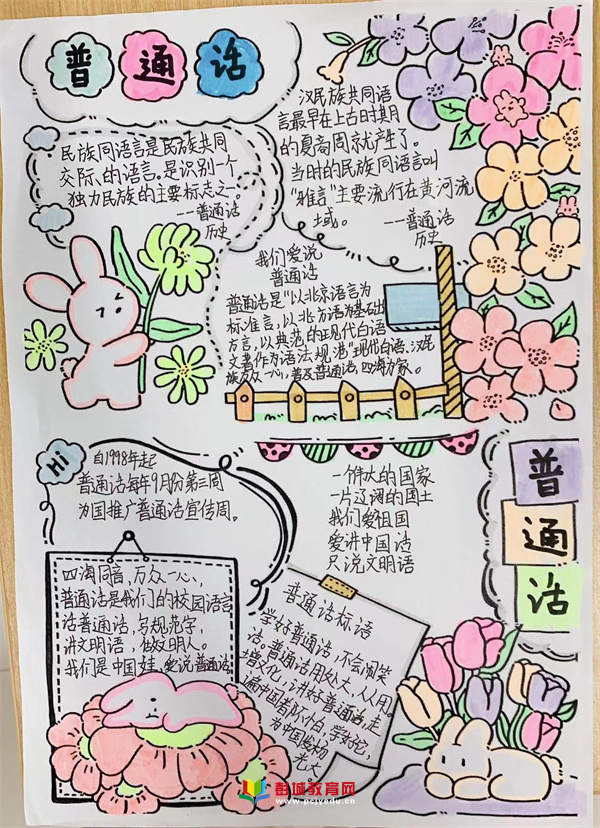 普通话
民族同语言是民族共同
交际的语言。是识别一个
独力民族的主要标志之一。
---普通话
历史
汉民族共同语
言最早在上古时其月
的夏商周就产生了。
当时的民族同语言叫
"雅言"主要流行在黄河流
域。
---普通话
历史
我们爱说
普通话
普通话是"以北京语言为
标准言,以北方话为基础
方言,以典范的现代白话
文著作为语法规范"现代白话、汉民
族万众一心,普及普通话,四海为家。
Hi
自1998年起
普通话每年9月份第三周
为国推广普通话宣传周。
一个伟大的国家
一片辽阔的国土
我们爱祖国
爱讲中国话
只说文明语
普
通
话
四海同音,万众一心,
普通话是我们的校园语言
话普通话,写规范字,
讲文明语,做文明人。
我们是中国娃、爱说普通话
普通话标语
学好普通话,不会闹笑
话。普通话用处大,人人用。
增文化,讲好普通话,走
遍中国都不怕。学好它,
为中国发扬
光大。
彭城教育网
www.pcjyedu.cn